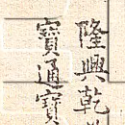 隆興乾
寶通寶